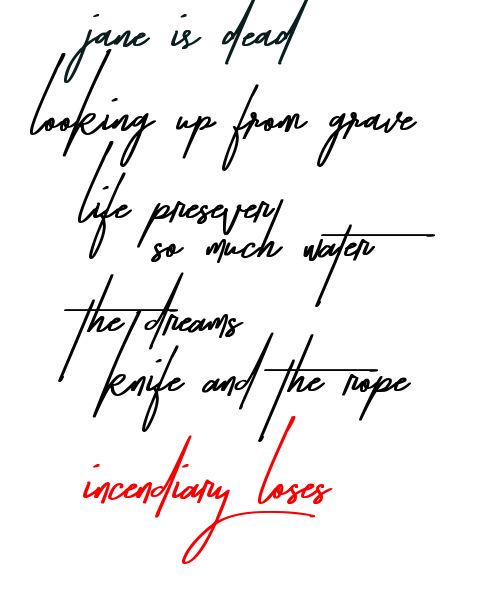 jane is dead
looking up from grave
life presever/
so much water
the dreams
knife and the rope
incendiary loses